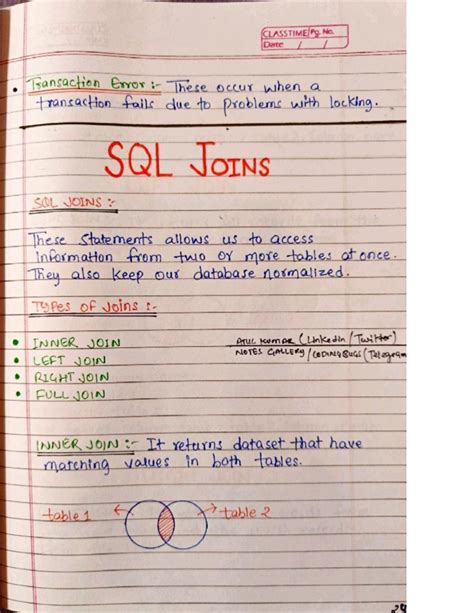 CLASSTIME Pg. No.
Date / /
• Transaction Error :- These occur when a
transaction fails due to problems with locking.
SQL JOINS
SQL JOINS :-
These Statements allows us to access
Information from two or more tables at once.
They also keep our database normalized.
Types of Joins :-
• INNER JOIN
• LEFT JOIN
• RIGHT JOIN
• FULL JOIN
ATUL KUMAR (Linkedin / Twitter)
NOTES GALLERY / CODING BUGS (Telegram
INNER JOIN :- It returns dataset that have
matching values in both tables.
table 1
table 2
29